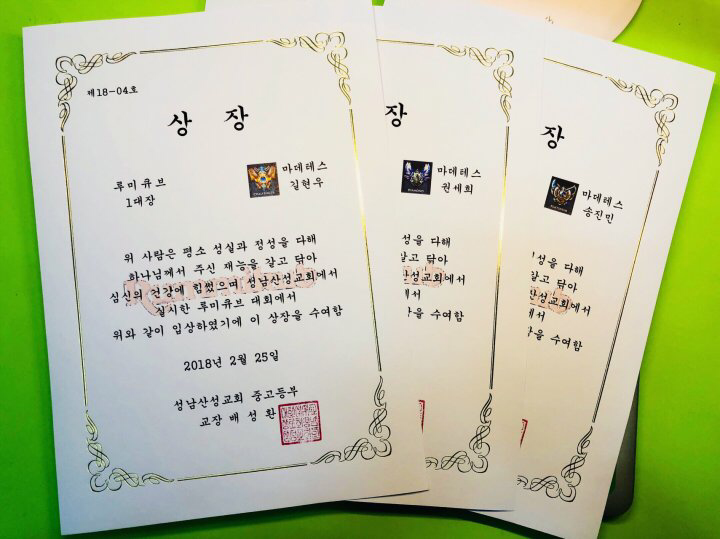 제18-04호
상 장
루미큐브
1대장
마데테스
김현우
위 사람은 평소 성실과 정성을 다해
하나님께서 주신 재능을 갈고 닦아
심신의 건강에 힘썼으며 성남산성교회에서
실시한 루미큐브 대회에서
위와 같이 입상하였기에 이 상장을 수여함
2018년 2월 25일
성남산성교회 중고등부
교장 배성환
장
마데테스
권세희
DIAMOND
성을 다해
갈고 닦아
산성교회에서
에서
을 수여함
장
마데테스
송진민
성을 다해
갈고 닦아
산성교회에서
에서
을 수여함